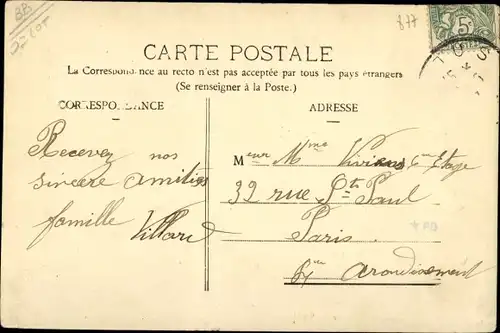 BB
877
5c
CARTE POSTALE
La Correspondance au recto n'est pas acceptée par tous les pays étrangers
(Se renseigner à la Poste.)
CORRESPONDANCE
ADRESSE
Recevez nos
sincere amitiés
famille
Villard
Meur Mme Viviens 6me Etage
32 rue St Paul
Paris
4me arondisement